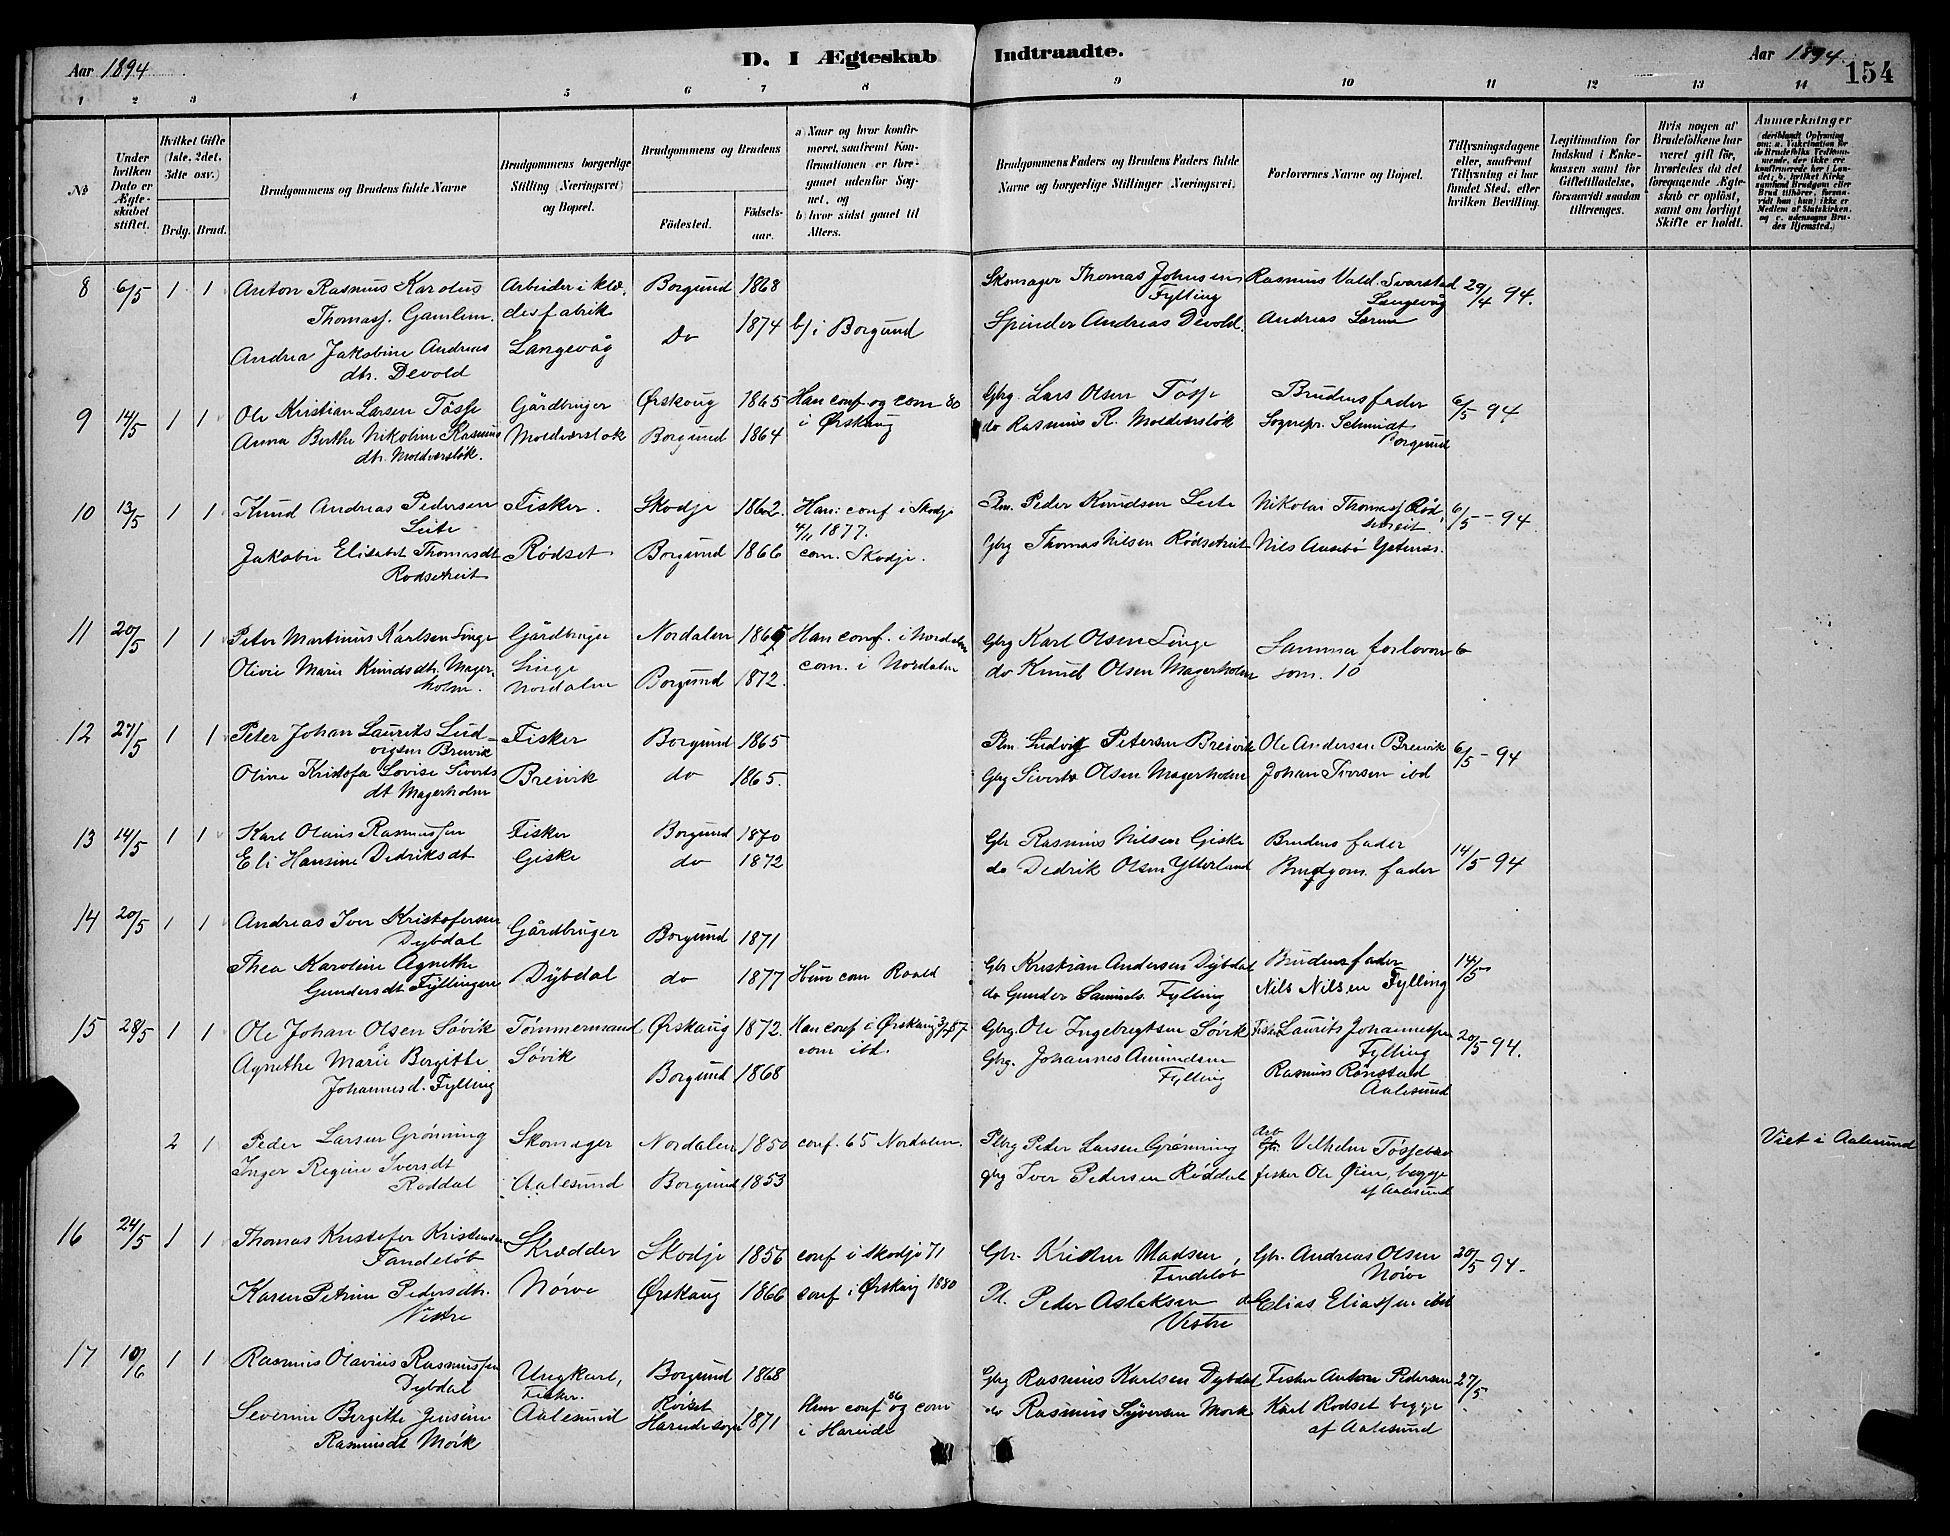 Aar 1894
D. I Ægteskab Indtraadte.
Aar 1894.
154
1 2 3 4 5 6 7 8 9 10 11 12 13 14
No
Under hvilken Dato er Ægteskabet stiftet.
Hvilket Gifte (1ste, 2det, 3dte osv.)
Brdg. Brud.
Brudgommens og Brudens fulde Navne
Brudgommens borgerlige Stilling (Næringsvei) og Bopæl.
Brudgommens og Brudens
Fødested.
Fødselsaar.
a) Naar og hvor konfirmeret, saafremt Konfirmationen er foregaaet udenfor Sognet, og
b) hvor sidst gaaet til Alters.
Brudgommens Faders og Brudens Faders fulde Navne og borgerlige Stillinger (Næringsvei)
Forlovernes Navne og Bopæl.
Tillysningsdagene eller, saafremt Tillysning ei har fundet Sted, efter hvilken Bevilling.
Legitimation for Indskud i Enkekassen samt for Giftetilladelse, forsaavidt saadan tiltrænges.
Hvis nogen af Brudefolkene har været gift før, hvorledes da det foregaaende Ægteskab er opløst, samt om lovligt Skifte er holdt.
Anmærkninger
8 6/5 1 1 Anton Rasmus Karolus Arbeider i klæ- Borgund 1868 Skomager Thomas Johnsen Rasmus Vald. Svarstad 29/4 94.
Thomasf. Gamlem. desfabrik Fylling Langevåg
Do 1874 b/ i Borgund Spinder Andreas Devold. Andreas
Andrea Jakobine Andreas Langevåg
dtr. Devold
9 14/5 1 1 Ole Kristian Larsen Tøsse Gårdbruger Ørskoug 1865 Han conf. og com 80 Gbrg. Lars Olsen Tøsse Brudens fader 6/5 94
Anna Berthe Nikoline Rasmus Moldværsløk Borgund 1864 i Ørskoug do Rasmus R. Moldværsløk Sognepr. Schmidt
dtr. Moldværsløk. Borgund
10 13/5 1 1 Knud Andreas Pedersen Fisker. Skodje 1862. Han: conf i Skodje Plm. Peder Knudsen Leite Nikolai Thomasf Rød- 6/5 - 94.
Leite 4/11 1877. setreit
Elisabet Thomasdt Rødset Borgund 1866 com. Skodje. Gbrg Thomas Nilsen Rødsetreit Nils
Rødsetreit
11 20/5 1 1 Peter Martinus Karlsen Linge Gårdbruger Nordalen 1865 Han conf. i Nordalen Gbrg Karl Olsen Linge Samme forlovere 6
Olivie Marie Knudsdtr. Mager- Linge com. i Nordalen som. 10
holm. Nordalen Borgund 1872. do Knud Olsen Magerholm
12 27/5 1 1 Peter Johan Laurits Lud- Fisker Borgund 1865 Plm. Ludvig Petersen Breivik Ole Andersen Breivik 6/5 - 94
vigsen Breivik
Oline Kristofa Lovise Siverts Breivik do 1865. Gbrg Sivert Olsen Magerholm Johan Iversen ibd
dt Magerholm
13 14/5 1 1 Karl Olaus Rasmussen Fisker Borgund 1870 Gbr Rasmus Nilsen Giske Brudens fader 14/5 - 94
Eli Hansine Dedriksdt Giske do 1872 do Dedrik Olsen Ytterland Brudgom. fader
14 20/5 1 1 Andreas Iver Kristofersen Gårdbruger Borgund 1871
Dybdal
Thea Karoline Agnethe Dybdal do 1877 Hun com Roald Gbr Kristian Andersen Dybdal Brudens fader 14/5
Gundersdt Fyllingen do Gunder Samuels. Fylling Nils Nilsen Fylling
15 28/5 1 1 Ole Johan Olsen Søvik Tømmermand Ørskaug 1872. Han conf i Ørskaug 3/7 87. Gbrg. Ole Ingebrigtsen Søvik Fisker Laurits Johannessen 20/5 94.
Agnethe Marie Bergitte Søvik com ibd. Gbrg. Johannes Amundsen Fylling
Johannesd. Fylling Borgund 1868 Fylling Rasmus Rønstad
Aalesund
2 1 Peder Larsen Grønning Skomager Nordalen 1850 conf. 65 Nordalen. Plbrg Peder Larsen Grønning Arb Vilhelm Tøssebro Viet i Aalesund
Inger Regine Iversdt Aalesund Borgund 1853 gbrg Iver Pedersen Røddal fisker Ole Øien, begge
Røddal af Aalesund
16 24/5 1 1 Thomas Kristofer Kristensen Skrædder Skodje 1856 conf i Skodje 71 Gbr. Kristen Madsen Gbr. Andreas Olsen 20/5 94.
Fandeløb Fandeløb Nørve
Karen Petrine Pedersdtr. Nørve Ørskaug 1866 conf i Ørskaug 1880 Pl. Peder Aslaksen Elias Eliassen ibd
Vestre Vestre
17 10/6 1 1 Rasmus Olavius Rasmussen Ungkarl, Borgund 1868 Gbrg Rasmus Karlsen Dybdal Fisker Anton Pedersen 27/5
Dybdal Fisker.
Severine Bergitte Jensine Aalesund Røiset Hareidesogn 1871 Hun conf 86 og com do Rasmus Syversen Mork Karl Rødset begge
Rasmusdt Mork i Hareide af Aalesund